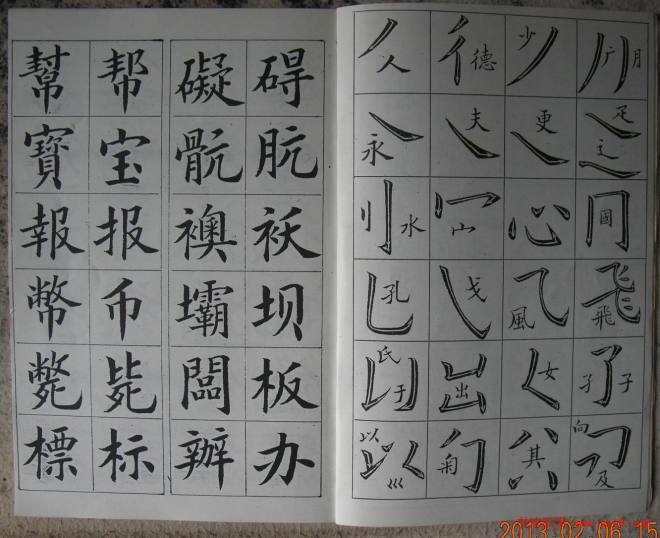 幫 帮 礙 碍
寶 宝 骯 肮
報 报 襖 袄
幣 币 壩 坝
斃 毙 闆 板
標 标 辦 办
人 德 少 广 月
永 夫 更 疋 辶
水 山 心
孔 戈 風 飛
氏 于 出 女 孑 子
以 巛 菊 其 向 及
2013.02.06 15